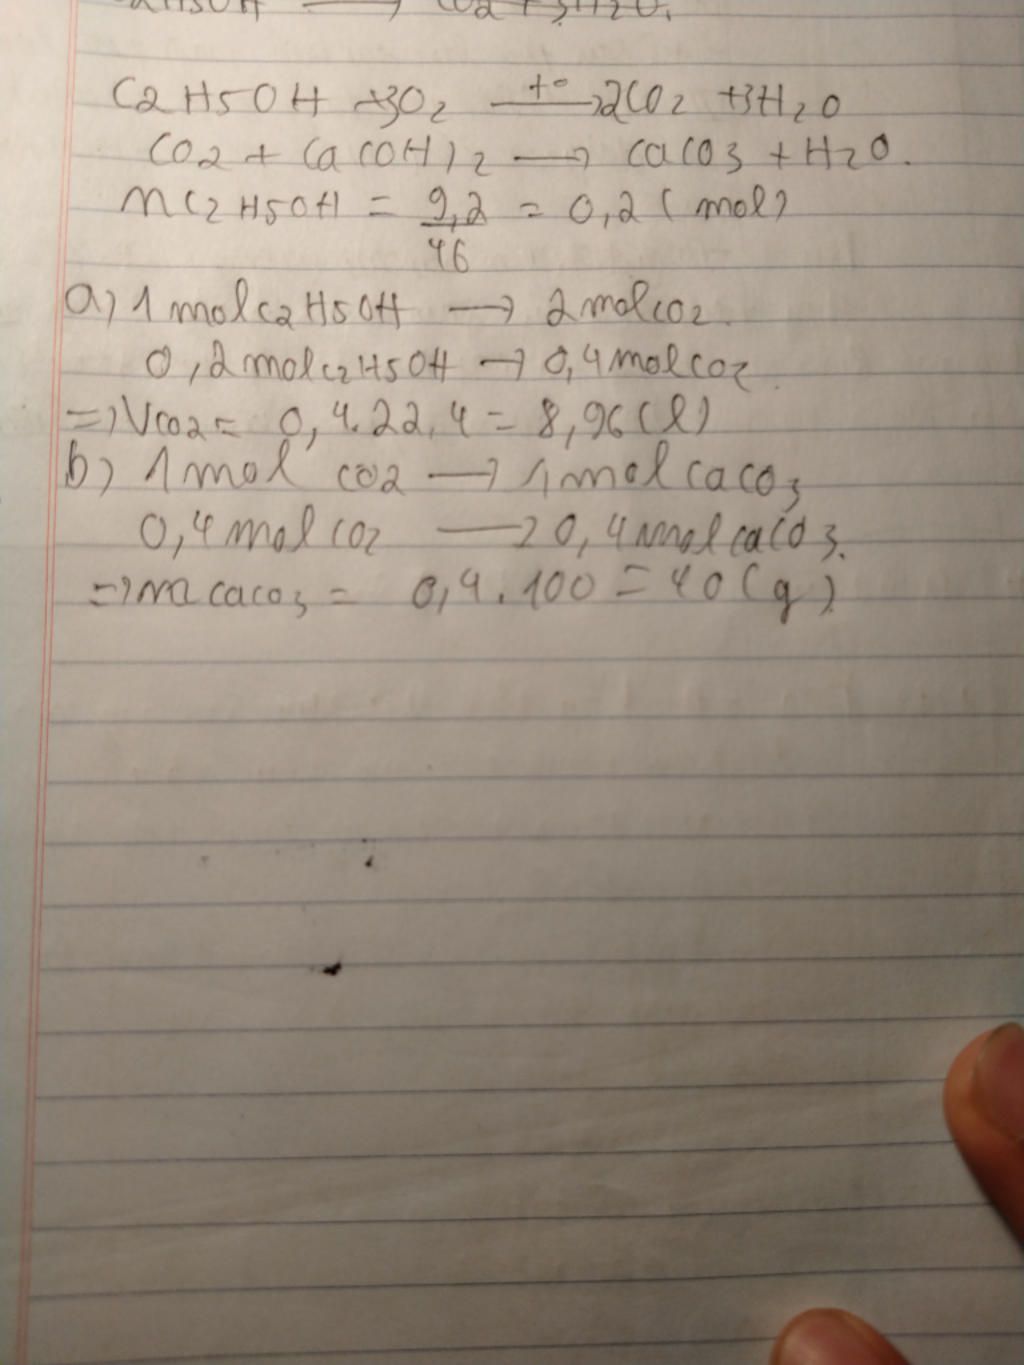 C2H5OH → CO2 + 3H2O.
C2H5OH +3O2 —t°→ 2CO2 +3H2O
CO2 + Ca(OH)2 → CaCO3 + H2O.
nC2H5OH = 9,2/46 = 0,2 (mol)
a) 1 mol C2H5OH → 2 mol CO2.
0,2 mol C2H5OH → 0,4 mol CO2.
=> VCO2 = 0,4.22,4 = 8,96 (l)
b) 1 mol CO2 → 1 mol CaCO3
0,4 mol CO2 → 0,4 mol CaCO3.
=> m CaCO3 = 0,4.100 = 40 (g)